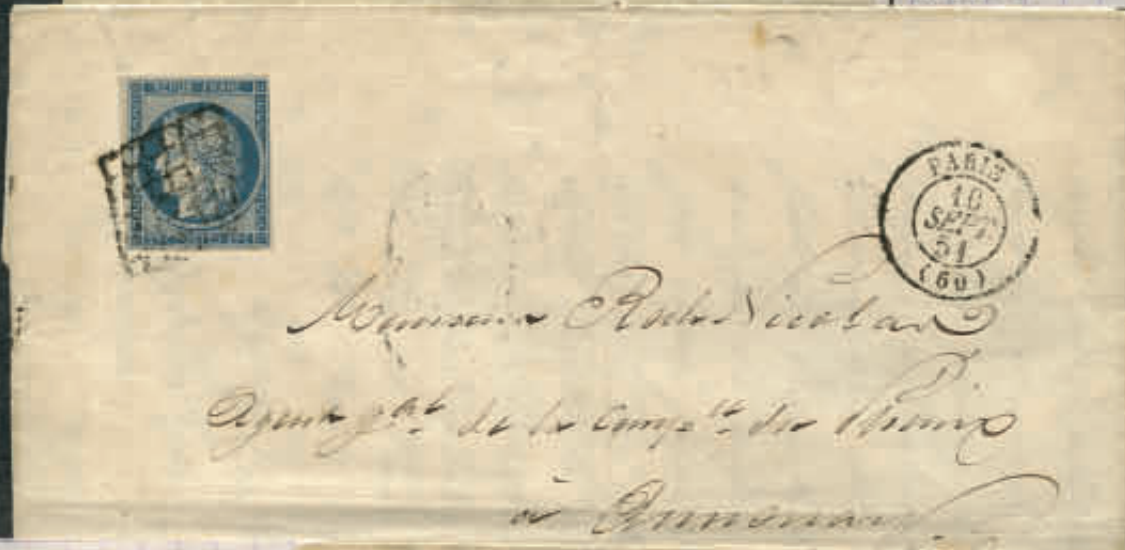 REPUB. FRANC.
PARIS
16
SEPT.
51
(60)
Monsieur Roche Nicolas
Agent gal. de la Compie. du Phenix
à Annonay